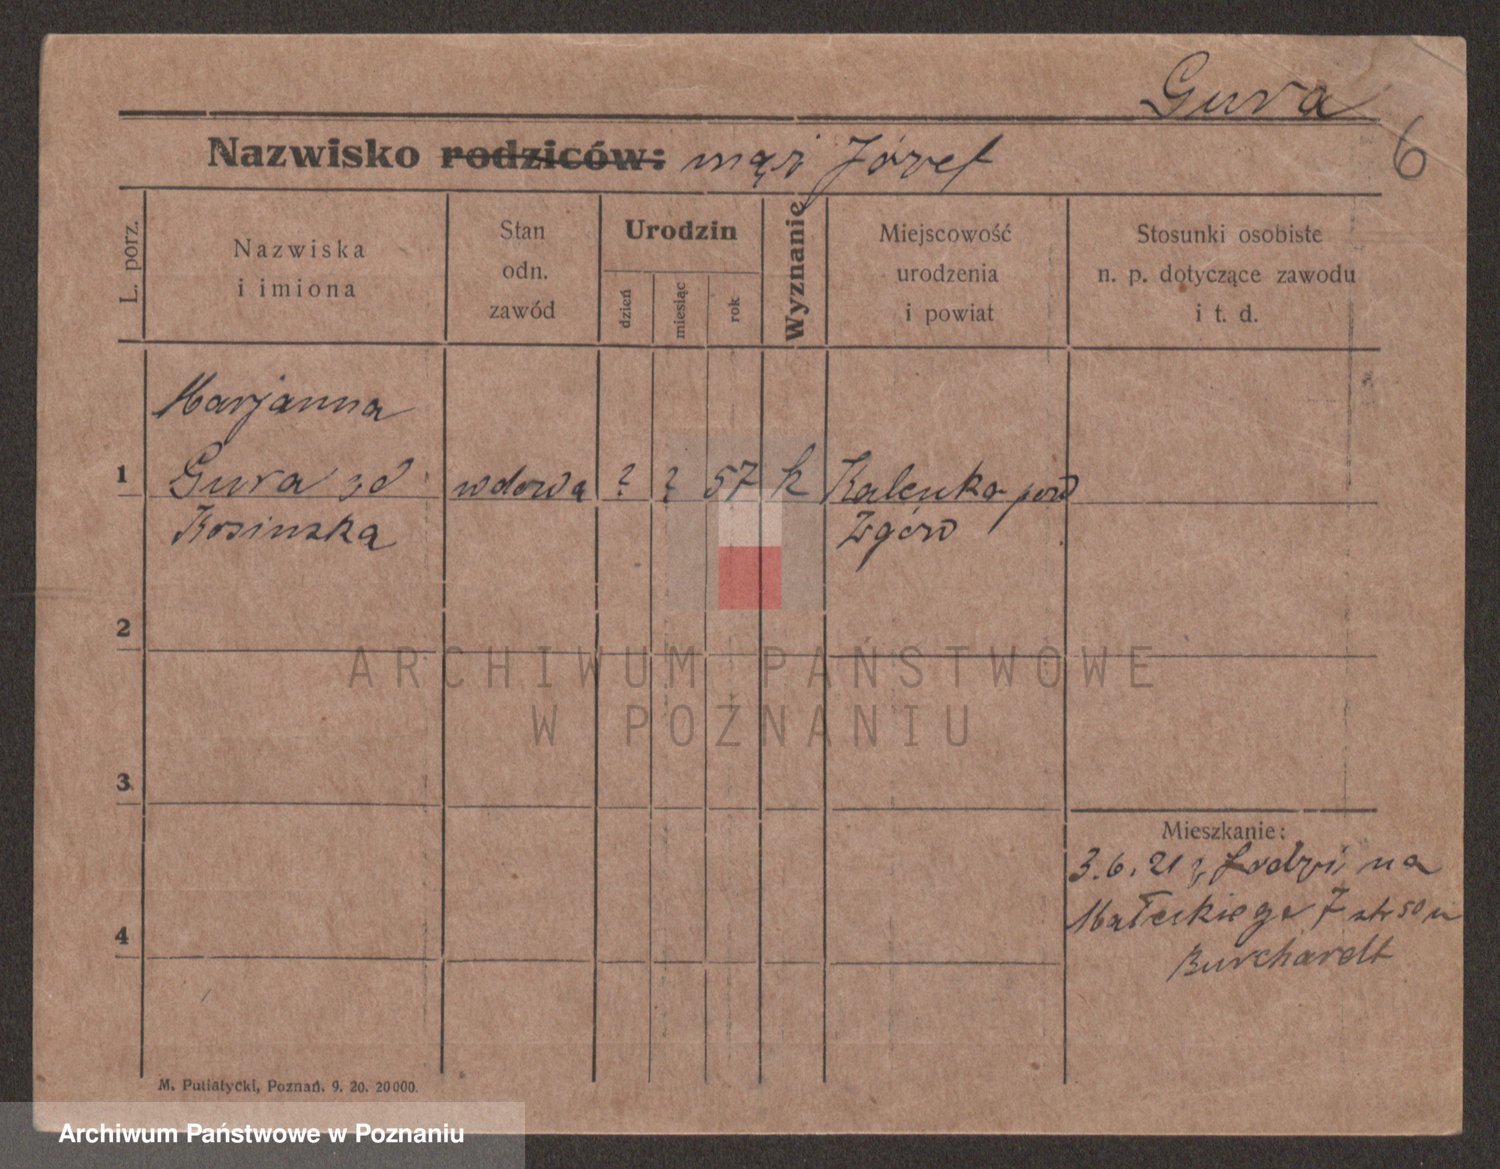 Gura
6
Nazwisko rodziców: mąż Józef
L. porz.
Nazwiska
i imiona
Stan
odn.
zawód
Urodzin
dzień
miesiąc
rok
Wyznanie
Miejscowość
urodzenia
i powiat
Stosunki osobiste
n. p. dotyczące zawodu
i t. d.
Marjanna
1 Gura zd wdowa ? ? 57 k
Kosinska Zgórz
2
ARCHIWUM PAŃSTWOWE
W POZNANIU
3
Mieszkanie:
3.6.21 z Łodzi na
Małeckiego 7 str 50 u
4
Burchardt
M. Putiatycki, Poznań. 9. 20. 20000.
Archiwum Państwowe w Poznaniu